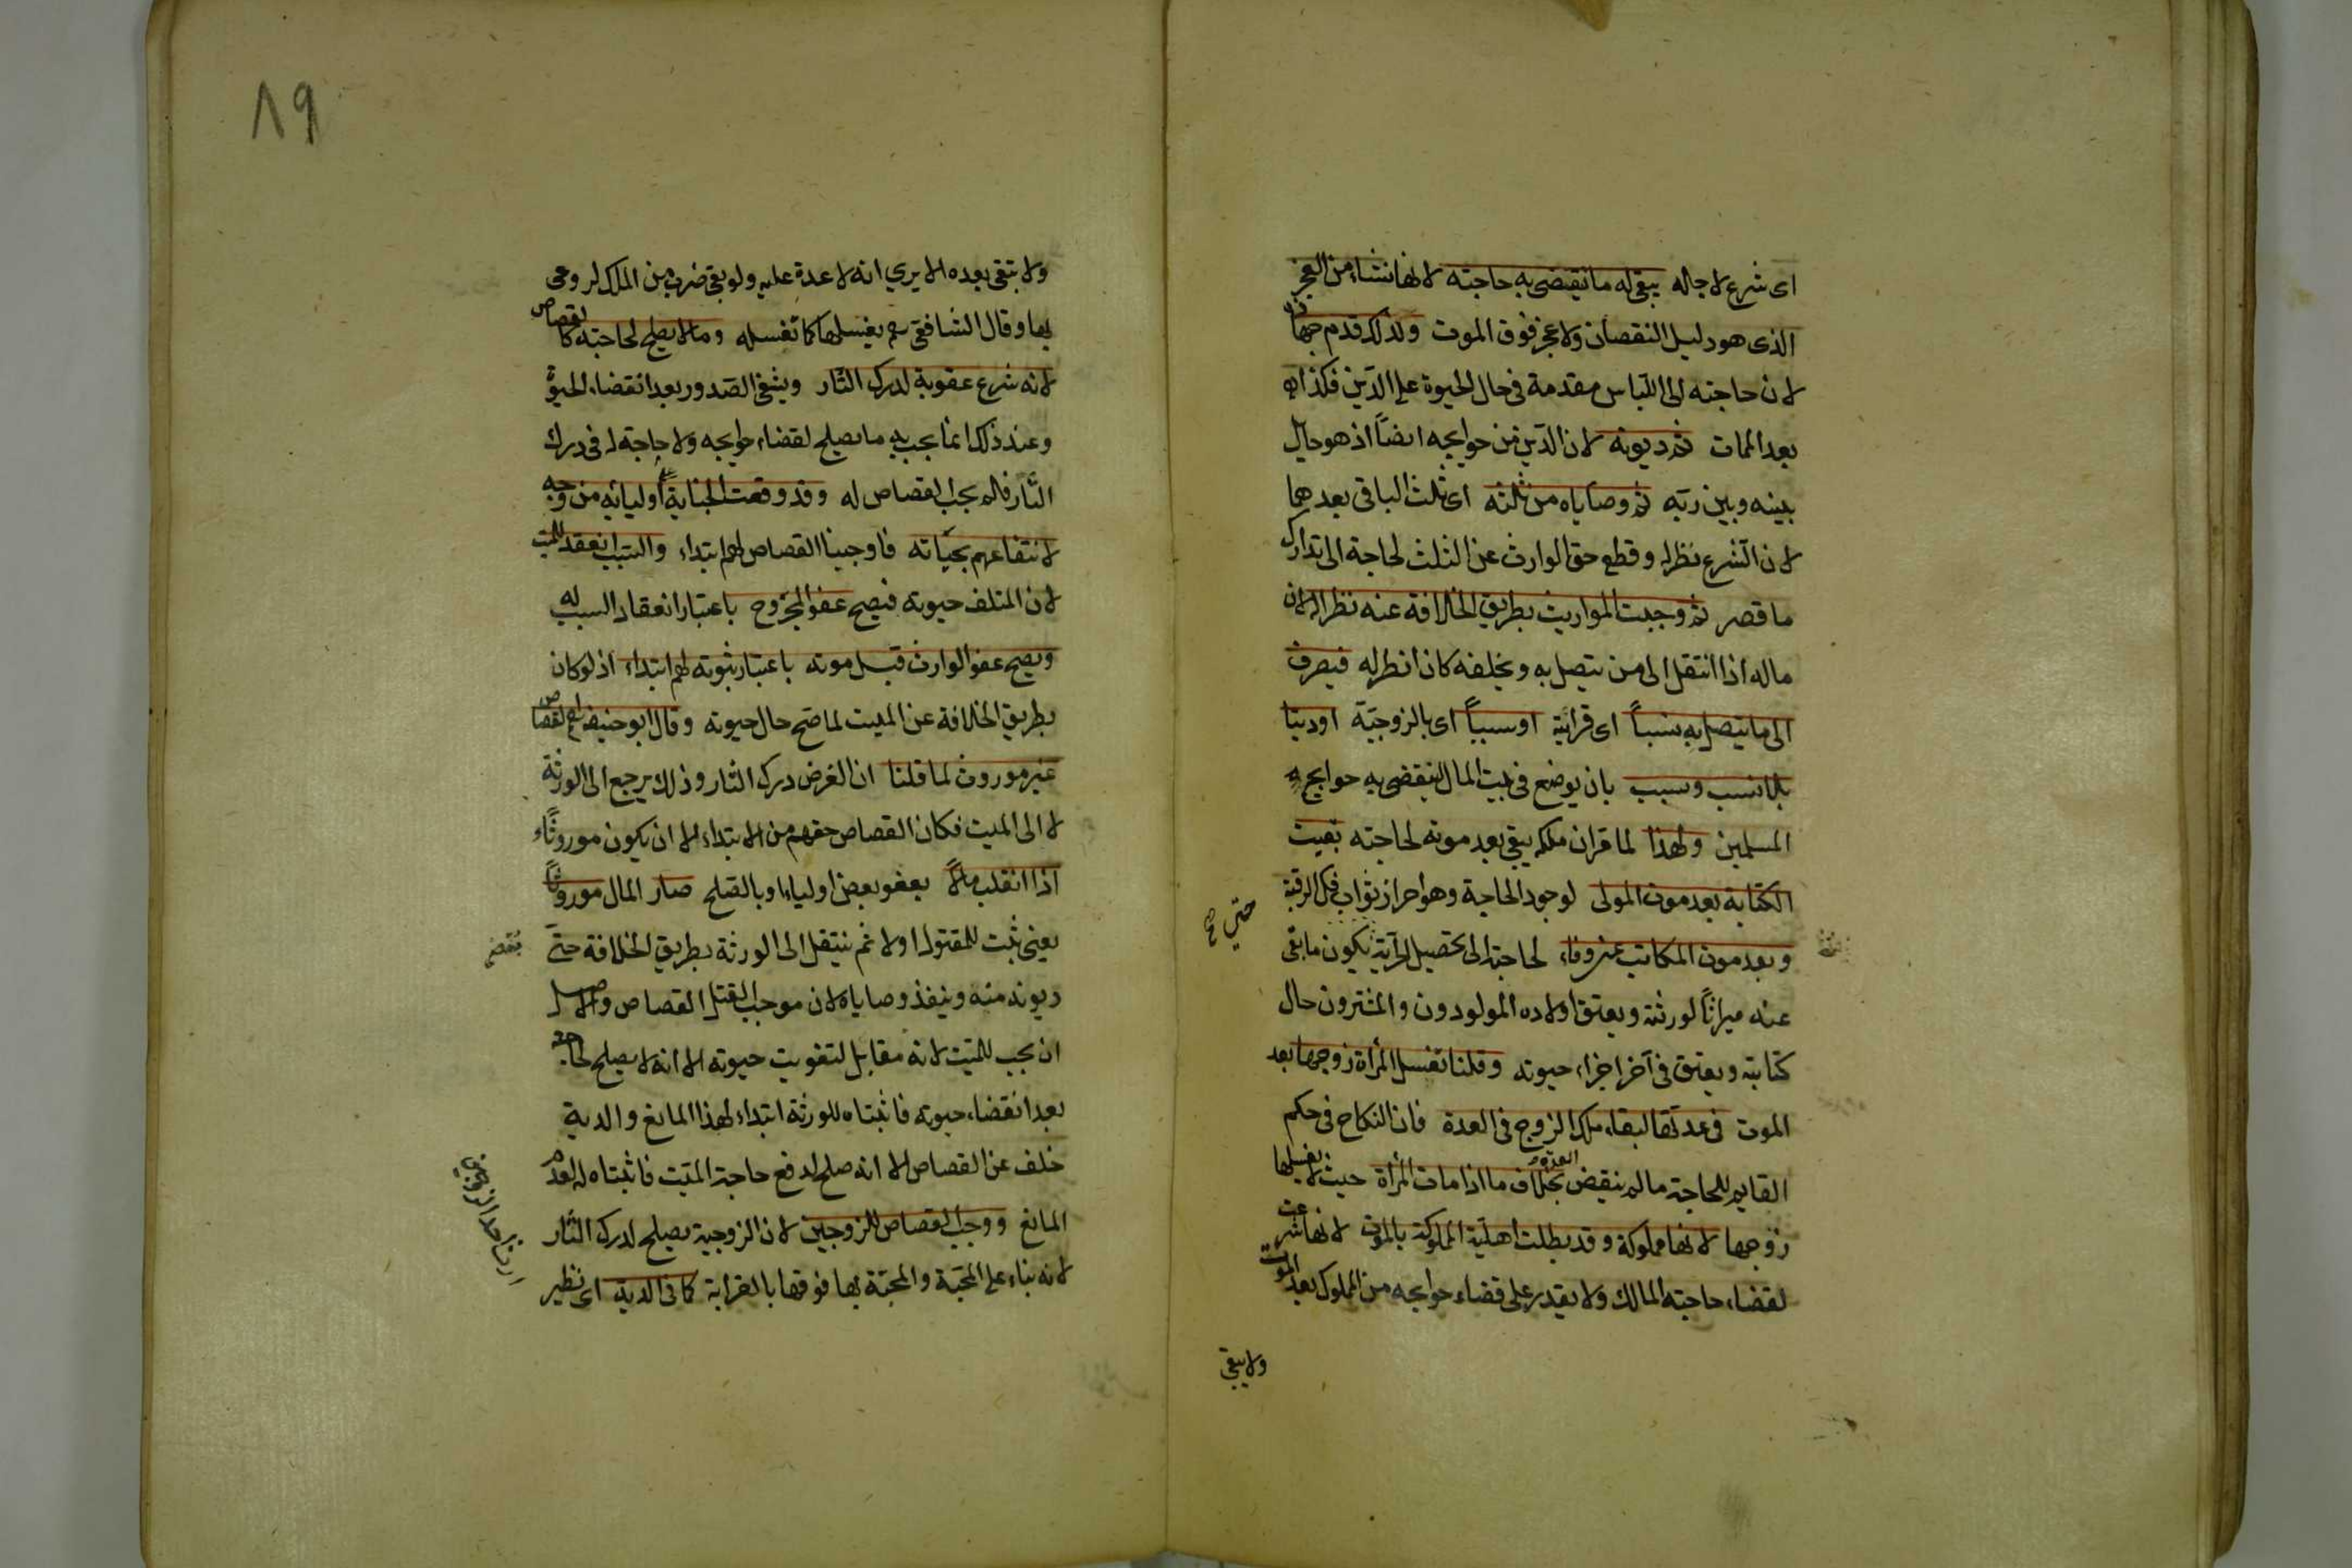 اى شرع لاجاله يبقى له ما تنقضى به حاجته لانها تنشاء من العجز
الذى هو دليل النقصان ولا عجز فوق الموت ولذلك قدم جهازه
لان حاجته الى اللباس مقدمة فى حال الحيوة على الدين فكذا
بعد الممات ثم ديونه لان الدين من حوايجه ايضاً اذ هو حايل
بينه وبين ربه ثم وصاياه من ثلثه اى ثلث الباقى بعدهما
لان الشرع نظر له وقطع حق الوارث عن الثلث لحاجة الى تدارك
ما قصر ثم وجبت المواريث بطريق الخلافة عنه نظرا له لان
ماله اذا انتقل الى من يتصل به ويخلفه كان انظر له فيصرف
الى ما يتصل به نسباً اى قرابة او سبباً اى بالزوجية او دينا
بلا نسب وسبب بان يوضع فى بيت المال لينقضى به حوايج
المسلمين ولهذا لما قر ان ملكه يبقى بعد موته لحاجته بقيت
الكتابة بعد موت المولى لوجود الحاجة وهو احراز ثواب فك الرقبة
وبعد موت المكاتب عن وفاء لحاجته الى تحصيل الحرية يكون ما بقى
حتى صح
عنه ميراثاً لورثته ويعتق اولاده المولودون والمشترون حال
كتابته ويعتق فى آخر اجزاء حيوته وقلنا تغسل المرأة زوجها بعد
الموت فى عدتها لبقاء ملك الزوج فى العدة فان النكاح فى حكم
القايم للحاجة ما لم ينقض العدة بخلاف ما اذا ماتت المرأة حيث لا يغسلها
زوجها لانها مملوكة وقد بطلت اهلية المملوكية بالموت لانها شرعت
لقضاء حاجته المالك ولا يقدر على قضاء حوايجه من المملوك بعد الموت
ولا يبقى
٨٩
ولا تبقى بعده الا يرى انه لا عدة عليه ولو بقى ضرب من الملك لروعى
بها وقال الشافعى رحم يغسلها كما تغسله وما لا يصلح لحاجته كالقصاص
لانه شرع عقوبة لدرك الثار ويشفى الصدور بعد انقضاء الحيوة
وعند ذلك انما يجب به ما يصلح لقضاء حوايجه ولا حاجة له فى درك
الثار فلم يجب القصاص له وقد وقعت الجناية على اوليائه من وجه
لانتفاعهم بحياته فاوجبنا القصاص لهم ابتداء والسبب انعقد للميت
لان المتلف حيوته فيصح عفو المجروح باعتبار انعقاد السبب له
ويصح عفو الوارث قبل موته باعتبار ثبوته لهم ابتداء اذ لو كان
بطريق الخلافة عن الميت لما صح حال حيوته وقال ابو حنيفة رح القصاص
غير موروث لما قلنا ان الغرض درك الثار وذلك يرجع الى الورثة
لا الى الميت فكان القصاص حقهم من الابتداء لا ان يكون موروثاً
اذا انقلب مالاً بعفو بعض اولياء او بالصلح صار المال موروثاً
يعنى يثبت للمقتول اولا ثم ينتقل الى الورثة بطريق الخلافة حتى
تقضى
ديونه منه وينفذ وصاياه لان موجب القتل القصاص والاصل
ان يجب للميت لانه مقابل لتفويت حيوته الا انه لا يصلح لحاجته
بعد انقضاء حيوته فاثبتناه للورثة ابتداء لهذا المانع والدية
خلف عن القصاص الا انه صلح لدفع حاجة الميت فاثبتناه له لعدم
المانع ووجب القصاص للزوجين لان الزوجية يصلح لدرك الثار
لانه بناء على المحبة والمحبة بها فوقها بالقرابة كما فى الدية اى نظير